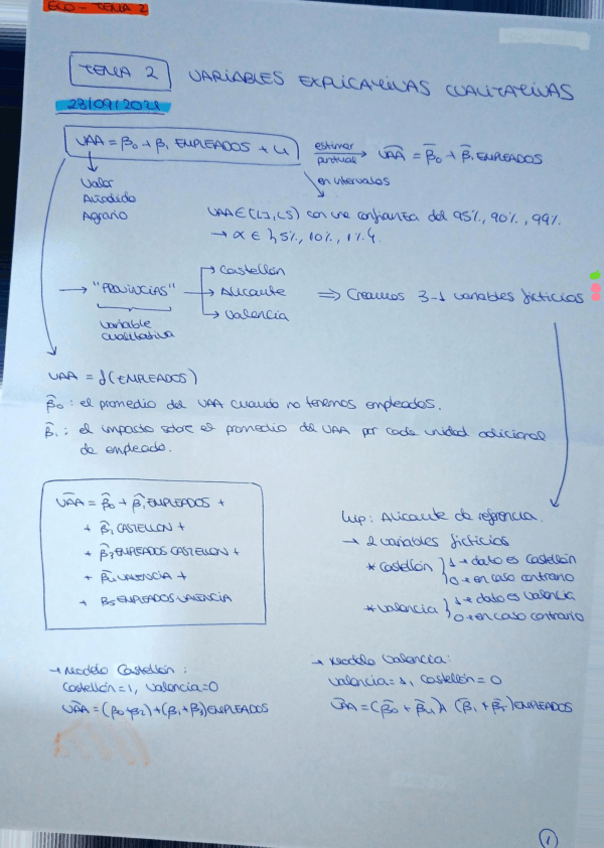 ECO - TEMA 2
TEMA 2 VARIABLES EXPLICATIVAS CUALITATIVAS
23/09/2021
VAA = β₀ + β₁ EMPLEADOS + u estimar puntual → V̂AA = β̂₀ + β̂₁ EMPLEADOS
en intervalos
Valor
Añadido
Agrario
VAA ∈ (LI, LS) con una confianza del 95%, 90%, 99%.
→ α ∈ {5%, 10%, 1%}.
→ "PROVINCIAS"
variable
cualitativa
→ Castellón
→ Alicante
→ Valencia
⇒ Creamos 3-1 variables ficticias
VAA = f(EMPLEADOS)
β̂₀: el promedio del VAA cuando no tenemos empleados.
β̂₁: el impacto sobre el promedio del VAA por cada unidad adicional
de empleado.
V̂AA = β̂₀ + β̂₁ EMPLEADOS +
+ β̂₂ CASTELLON +
+ β̂₃ EMPLEADOS CASTELLON +
+ β̂₄ VALENCIA +
+ β₅ EMPLEADOS VALENCIA
Alicante de referencia.
→ 2 variables ficticias
* Castellón } 1 → dato es Castellón
0 → en caso contrario
* Valencia } 1 → dato es Valencia
0 → en caso contrario
→ Modelo Castellón:
Castellón = 1, Valencia = 0
V̂AA = (β₀+β₂)+(β₁+β₃)EMPLEADOS
→ Modelo Valencia:
Valencia = 1, Castellón = 0
V̂AA = (β̂₀ + β̂₄) + (β̂₁ + β̂₅) EMPLEADOS
1